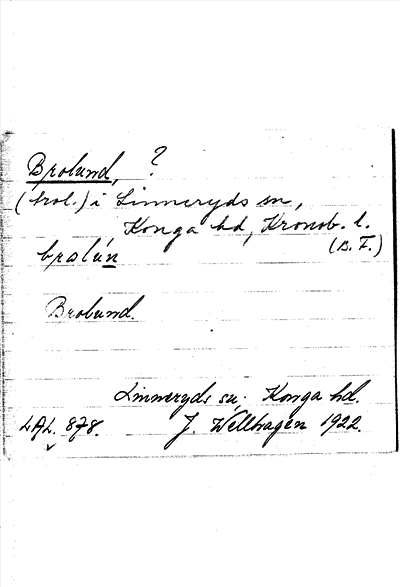 Brolund, ?
(trol.) i Linneryds sn,
Konga hd, Kronob. l.
(B. F.)
brolún
Brolund.
Linneryds sn, Konga hd.
LAL. 878. J. Wellhagen 1922.